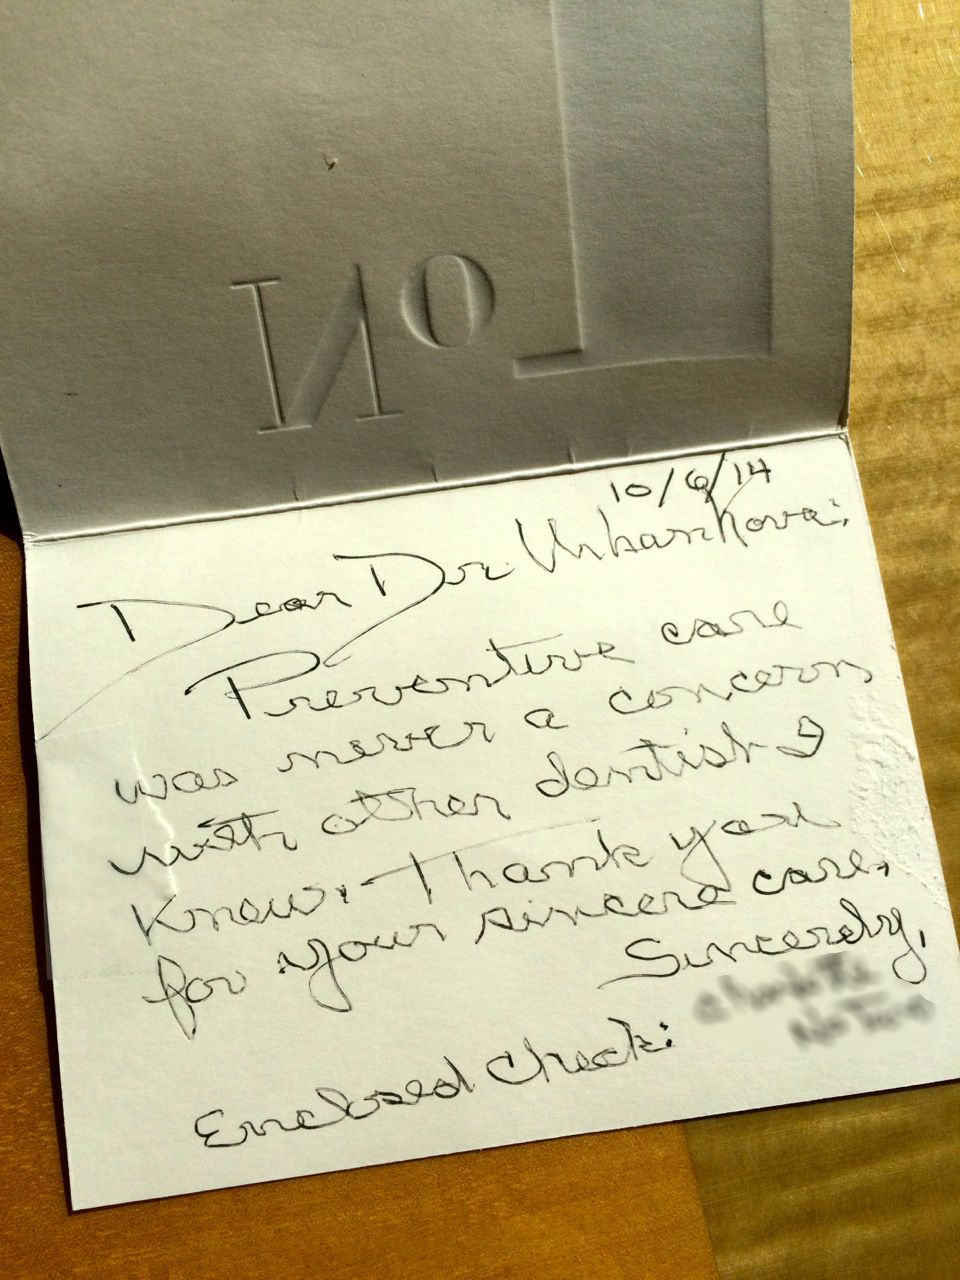 No
10/6/14
Dear Dr. Urbankova:
Preventive care
was never a concern
with other dentist I
know. Thank you
for your sincere care.
Sincerely,
Enclosed Check: